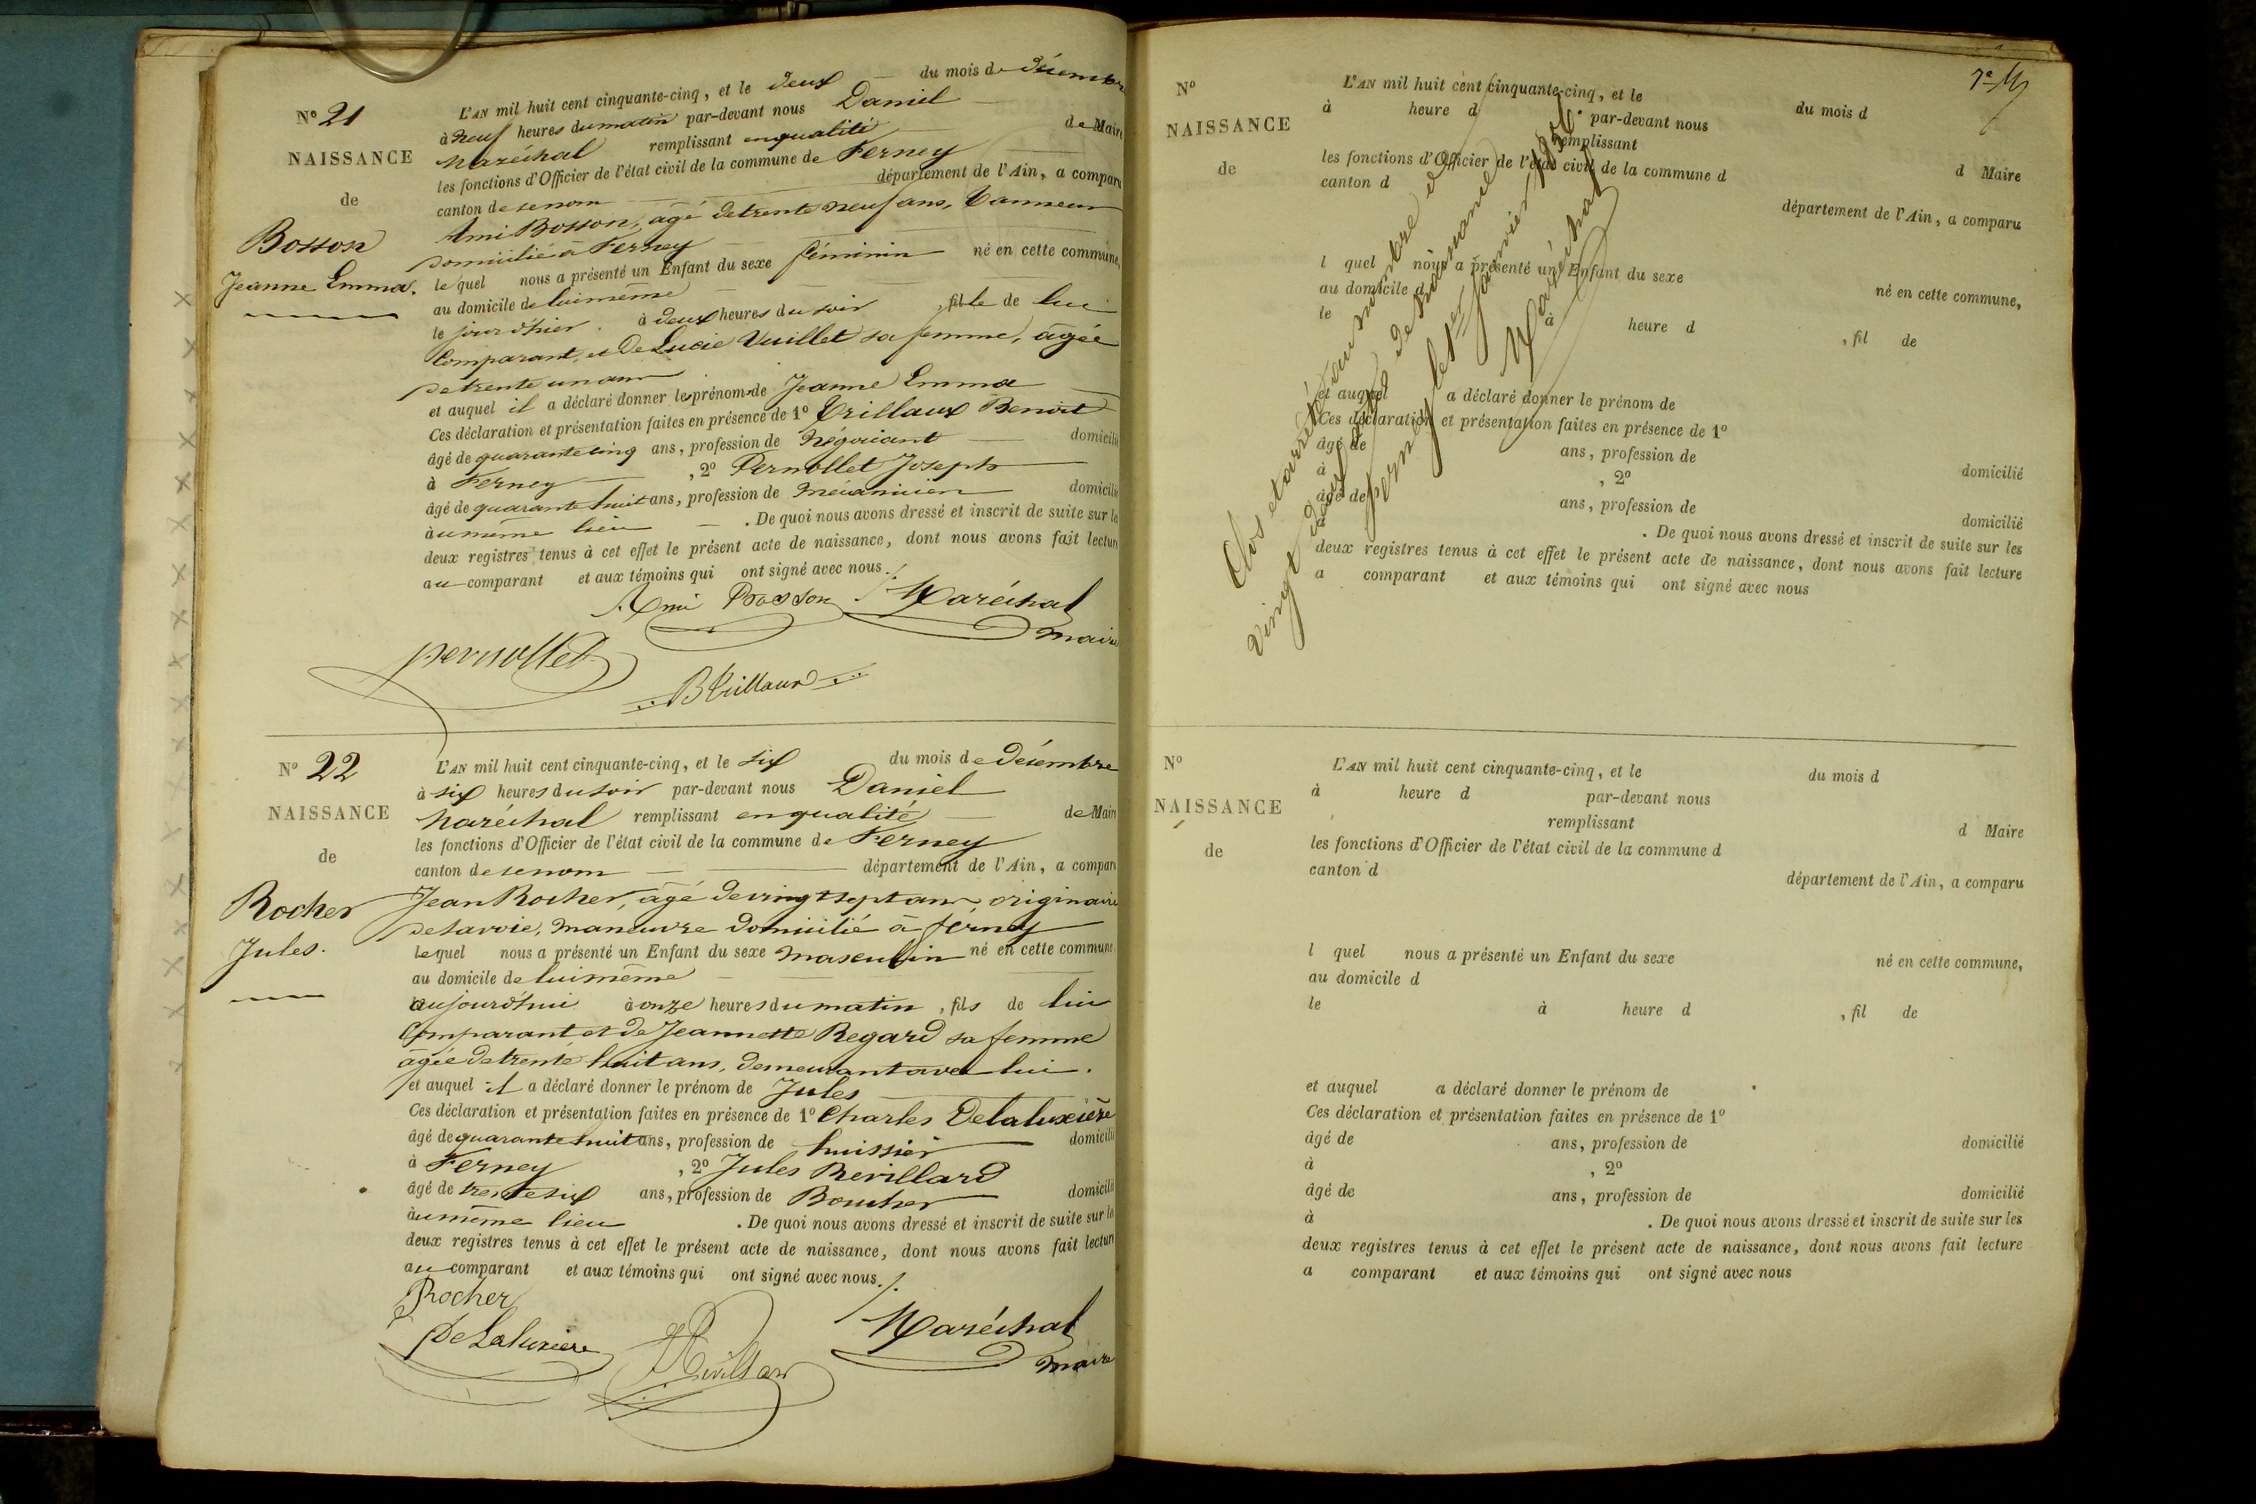 N° 21
NAISSANCE
de
Bosson
Jeanne Emma.
L'AN mil huit cent cinquante-cinq, et le deux du mois de décembre
à neuf heures du matin par-devant nous Daniel
Maréchal remplissant en qualité de Maire
les fonctions d'Officier de l'état civil de la commune de Ferney
canton de ce nom département de l'Ain, a comparu
Ami Bosson, âgé de trente neuf ans, tanneur
domicilié à Ferney
lequel nous a présenté un Enfant du sexe féminin né en cette commune,
au domicile de lui même
le jour d'hier. à deux heures du soir, fille de lui
Comparant, et De Lucie Vuillet sa femme, âgée
de trente un ans
et auquel il a déclaré donner les prénoms de Jeanne Emma
Ces déclaration et présentation faites en présence de 1° Trillaux Benoit
âgé de quarante cinq ans, profession de Négociant domicilié
à Ferney, 2° Pernollet Joseph
âgé de quarante huit ans, profession de mécanicien domicilié
au même lieu. De quoi nous avons dressé et inscrit de suite sur le
deux registres tenus à cet effet le présent acte de naissance, dont nous avons fait lecture
au comparant et aux témoins qui ont signé avec nous./.
Ami Bosson Maréchal
maire
pernollet
B Trillaux
N° 22
NAISSANCE
de
Rocher
Jules.
L'AN mil huit cent cinquante-cinq, et le six du mois de Décembre
à six heures du soir par-devant nous Daniel
Maréchal remplissant en qualité de Maire
les fonctions d'Officier de l'état civil de la commune de Ferney
canton de ce nom département de l'Ain, a comparu
Jean Rocher, âgé de vingt sept ans, originaire
de savoie, manœuvre domicilié à ferney
lequel nous a présenté un Enfant du sexe masculin né en cette commune
au domicile de lui même
aujourd'hui à onze heures du matin, fils de lui
Comparant, et de Jeannette Regard sa femme
âgée de trente huit ans, demeurant avec lui.
et auquel il a déclaré donner le prénom de Jules
Ces déclaration et présentation faites en présence de 1° Charles Delaluxière
âgé de quarante huit ans, profession de huissier domicilié
à Ferney, 2° Jules Revillard
âgé de trente six ans, profession de Boucher domicilié
au même lieu. De quoi nous avons dressé et inscrit de suite sur le
deux registres tenus à cet effet le présent acte de naissance, dont nous avons fait lecture
au comparant et aux témoins qui ont signé avec nous./.
Rocher
De Laluxiere Revillard Maréchal
maire
7e
N°
NAISSANCE
de
L'AN mil huit cent cinquante-cinq, et le du mois d
à heure d par-devant nous
remplissant d Maire
les fonctions d'Officier de l'état civil de la commune d
canton d département de l'Ain, a comparu
l quel nous a présenté un Enfant du sexe né en cette commune,
au domicile d
le à heure d, fil de
et auquel a déclaré donner le prénom de
Ces déclaration et présentation faites en présence de 1°
âgé de ans, profession de domicilié
à, 2°
âgé de ans, profession de domicilié
à. De quoi nous avons dressé et inscrit de suite sur les
deux registres tenus à cet effet le présent acte de naissance, dont nous avons fait lecture
a comparant et aux témoins qui ont signé avec nous
Clos et arrêté au nombre de
vingt deux actes de naissance
ferney le 1er janvier 1856.
Maréchal
N°
NAISSANCE
de
L'AN mil huit cent cinquante-cinq, et le du mois d
à heure d par-devant nous
remplissant d Maire
les fonctions d'Officier de l'état civil de la commune d
canton d département de l'Ain, a comparu
l quel nous a présenté un Enfant du sexe né en cette commune,
au domicile d
le à heure d, fil de
et auquel a déclaré donner le prénom de
Ces déclaration et présentation faites en présence de 1°
âgé de ans, profession de domicilié
à, 2°
âgé de ans, profession de domicilié
à. De quoi nous avons dressé et inscrit de suite sur les
deux registres tenus à cet effet le présent acte de naissance, dont nous avons fait lecture
a comparant et aux témoins qui ont signé avec nous